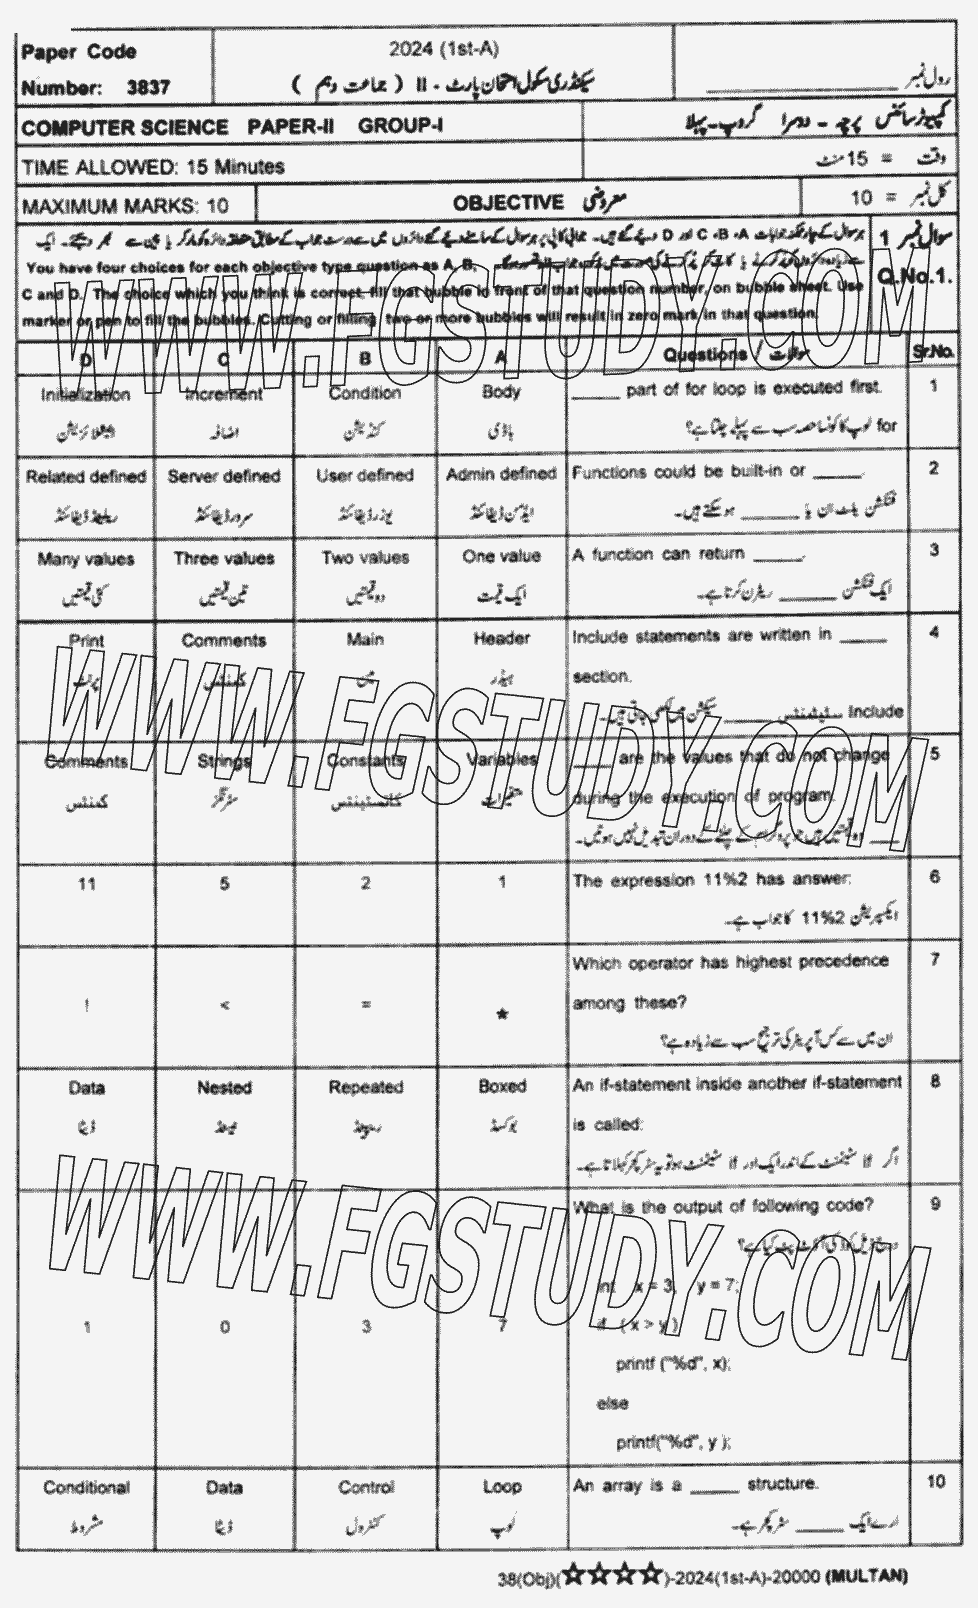 Paper Code
Number: 3837
2024 (1st-A)
سیکنڈری سکول امتحان پارٹ - II ( جماعت دہم )
رول نمبر
COMPUTER SCIENCE PAPER-II GROUP-I
کمپیوٹر سائنس پرچہ - دوسرا گروپ - پہلا
TIME ALLOWED: 15 Minutes
وقت = 15 منٹ
MAXIMUM MARKS: 10
OBJECTIVE معروضی
کل نمبر = 10
سوال نمبر 1
Q.No.1.
You have four choices for each objective type question as A, B,
C and D. The choice which you think is correct, fill that bubble in front of that question number, on bubble sheet. Use
marker or pen to fill the bubbles. Cutting or filling two or more bubbles will result in zero mark in that question.
D C B A Questions / سوالات Sr.No.
Initialization Increment Condition Body _____ part of for loop is executed first. 1
انیشلائزیشن اضافہ کنڈیشن باڈی for لوپ کا کونسا حصہ سب سے پہلے چلتا ہے؟
Related defined Server defined User defined Admin defined Functions could be built-in or _____. 2
ریلیٹڈ ڈیفائنڈ سرور ڈیفائنڈ یوزر ڈیفائنڈ ایڈمن ڈیفائنڈ فنکشن بلٹ ان یا _____ ہو سکتے ہیں۔
Many values Three values Two values One value A function can return _____. 3
کئی قیمتیں تین قیمتیں دو قیمتیں ایک قیمت ایک فنکشن _____ ریٹرن کرتا ہے۔
Print Comments Main Header Include statements are written in _____ 4
section.
پرنٹ کمنٹس مین ہیڈر Include سٹیٹمنٹس _____ سیکشن میں لکھی جاتی ہیں۔
Comments Strings Constants Variables ____ are the values that do not change 5
during the execution of program.
کمنٹس سٹرنگز کانسٹینٹس متغیرات ____ وہ قیمتیں ہیں جو پروگرام کے چلنے کے دوران تبدیل نہیں ہوتیں۔
11 5 2 1 The expression 11%2 has answer: 6
ایکسپریشن 11%2 کا جواب ہے۔
Which operator has highest precedence 7
! < = * among these?
ان میں سے کس آپریٹر کی ترجیح سب سے زیادہ ہے؟
Data Nested Repeated Boxed An if-statement inside another if-statement 8
is called:
ڈیٹا نیسٹڈ ریپیٹڈ بوکسڈ اگر if سٹیٹمنٹ کے اندر ایک اور if سٹیٹمنٹ ہو تو یہ سٹرکچر کہلاتا ہے۔
What is the output of following code? 9
درج ذیل کوڈ کی آؤٹ پٹ کیا ہے؟
int x = 3, y = 7;
1 0 3 7 if ( x > y )
printf ("%d", x);
else
printf("%d", y );
Conditional Data Control Loop An array is a _____ structure. 10
مشروط ڈیٹا کنٹرول لوپ ارے ایک _____ سٹرکچر ہے۔
38(Obj)(☆☆☆☆)-2024(1st-A)-20000 (MULTAN)
WWW.FGSTUDY.COM
WWW.FGSTUDY.COM
WWW.FGSTUDY.COM